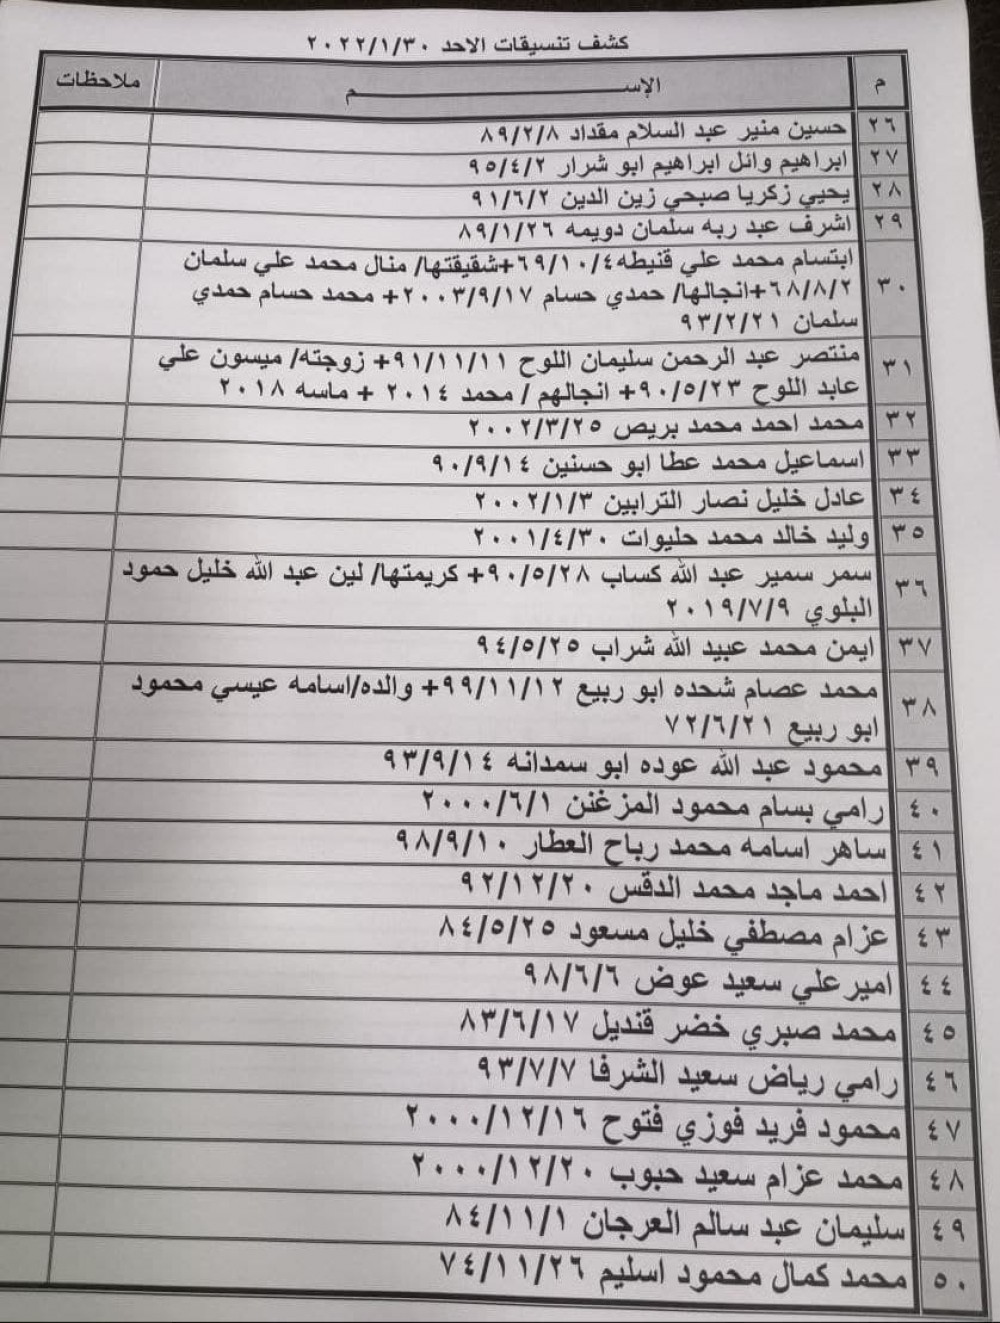 كشف تنسيقات الاحد ٢٠٢٢/١/٣٠
م الإســـــــــــم ملاحظات
٢٦ حسين منير عبد السلام مقداد ٨٩/٢/٨
٢٧ ابراهيم وائل ابراهيم ابو شرار ٩٥/٤/٢
٢٨ يحيي زكريا صبحي زين الدين ٩١/٦/٢
٢٩ اشرف عبد ربه سلمان دويمه ٨٩/١/٢٦
٣٠ ابتسام محمد علي قنيطه ٦٩/١٠/٤+شقيقتها/ منال محمد علي سلمان
٦٨/٨/٢+انجالها/ حمدي حسام ٢٠٠٣/٩/١٧+ محمد حسام حمدي
سلمان ٩٣/٢/٢١
٣١ منتصر عبد الرحمن سليمان اللوح ٩١/١١/١١+ زوجته/ ميسون علي
عابد اللوح ٩٠/٥/٢٣+ انجالهم / محمد ٢٠١٤ + ماسه ٢٠١٨
٣٢ محمد احمد محمد بريص ٢٠٠٢/٣/٢٥
٣٣ اسماعيل محمد عطا ابو حسنين ٩٠/٩/١٤
٣٤ عادل خليل نصار الترابين ٢٠٠٢/١/٣
٣٥ وليد خالد محمد حليوات ٢٠٠١/٤/٣٠
٣٦ سمر سمير عبد الله كساب ٩٠/٥/٢٨+ كريمتها/ لين عبد الله خليل حمود
البلوي ٢٠١٩/٧/٩
٣٧ ايمن محمد عبيد الله شراب ٩٤/٥/٢٥
٣٨ محمد عصام شحده ابو ربيع ٩٩/١١/١٢+ والده/اسامه عيسي محمود
ابو ربيع ٧٢/٦/٢١
٣٩ محمود عبد الله عوده ابو سمدانه ٩٣/٩/١٤
٤٠ رامي بسام محمود المزغنن ٢٠٠٠/٦/١
٤١ ساهر اسامه محمد رباح العطار ٩٨/٩/١٠
٤٢ احمد ماجد محمد الدقس ٩٢/١٢/٢٠
٤٣ عزام مصطفي خليل مسعود ٨٤/٥/٢٥
٤٤ امير علي سعيد عوض ٩٨/٦/٦
٤٥ محمد صبري خضر قنديل ٨٣/٦/١٧
٤٦ رامي رياض سعيد الشرفا ٩٣/٧/٧
٤٧ محمود فريد فوزي فتوح ٢٠٠٠/١٢/١٦
٤٨ محمد عزام سعيد حبوب ٢٠٠٠/١٢/٢٠
٤٩ سليمان عبد سالم العرجان ٨٤/١١/١
٥٠ محمد كمال محمود اسليم ٧٤/١١/٢٦